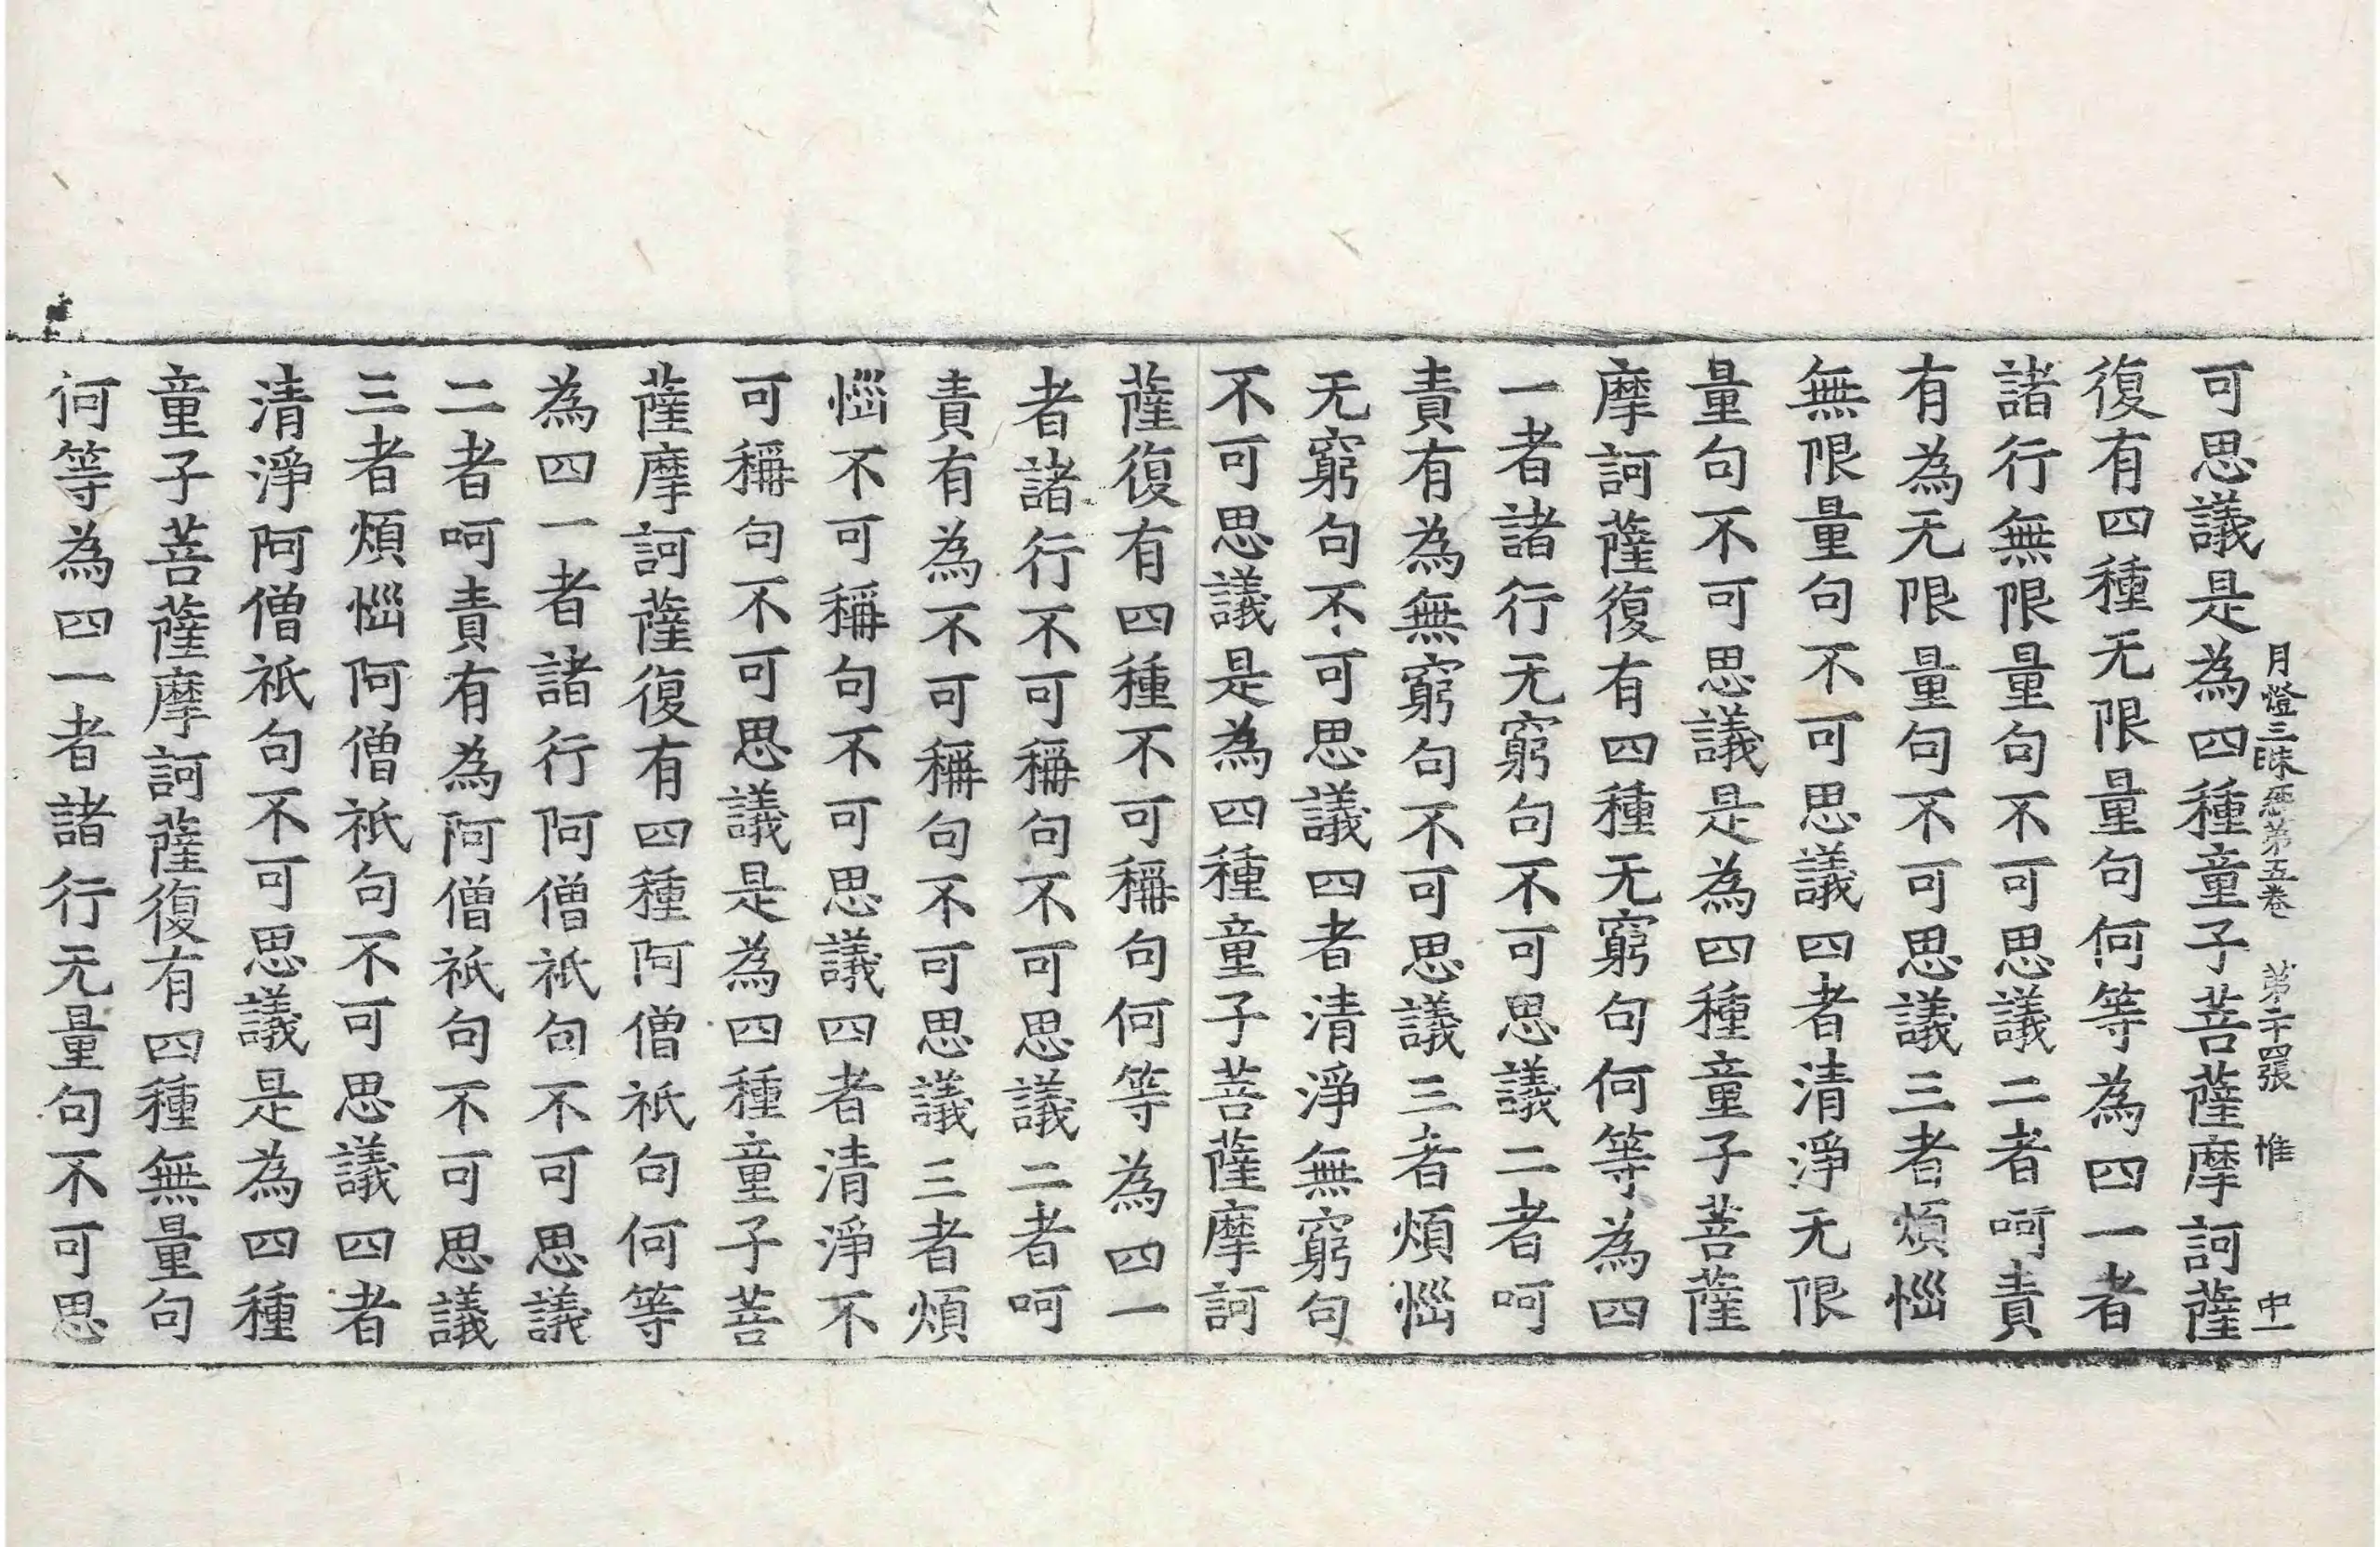 月燈三昧經第五卷 第二十四張 惟 中一
可思議是為四種童子菩薩摩訶薩
復有四種无限量句何等為四一者
諸行無限量句不可思議二者呵責
有為无限量句不可思議三者煩惱
無限量句不可思議四者清淨无限
量句不可思議是為四種童子菩薩
摩訶薩復有四種无窮句何等為四
一者諸行无窮句不可思議二者呵
責有為無窮句不可思議三者煩惱
无窮句不可思議四者清淨無窮句
不可思議是為四種童子菩薩摩訶
薩復有四種不可稱句何等為四一
者諸行不可稱句不可思議二者呵
責有為不可稱句不可思議三者煩
惱不可稱句不可思議四者清淨不
可稱句不可思議是為四種童子菩
薩摩訶薩復有四種阿僧祇句何等
為四一者諸行阿僧祇句不可思議
二者呵責有為阿僧祇句不可思議
三者煩惱阿僧祇句不可思議四者
清淨阿僧祇句不可思議是為四種
童子菩薩摩訶薩復有四種無量句
何等為四一者諸行无量句不可思